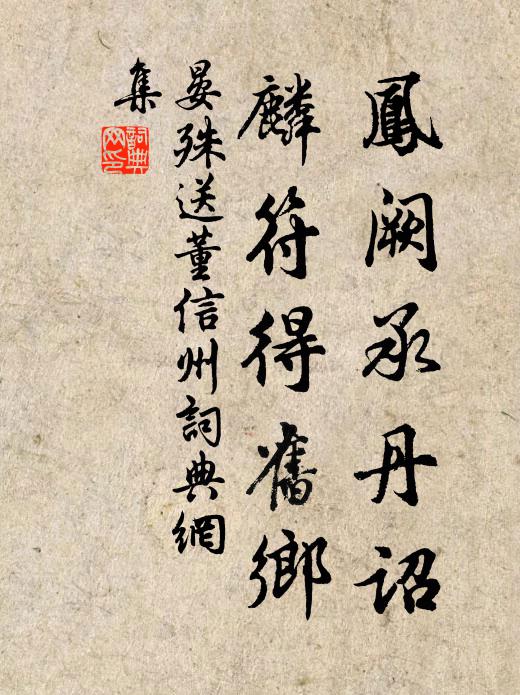 鳳闕承丹詔
麟符得舊鄉
晏殊送董信州詞典網
集
詞典网印